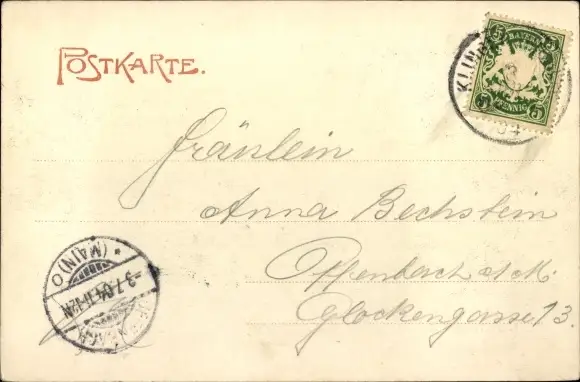 POSTKARTE.
5 BAYERN 5
5 PFENNIG 5
04
Fräulein
Anna Bechstein
Offenbach a/M.
Glockengasse 13.
(MAIN) O
-3.7.04.11-12N.